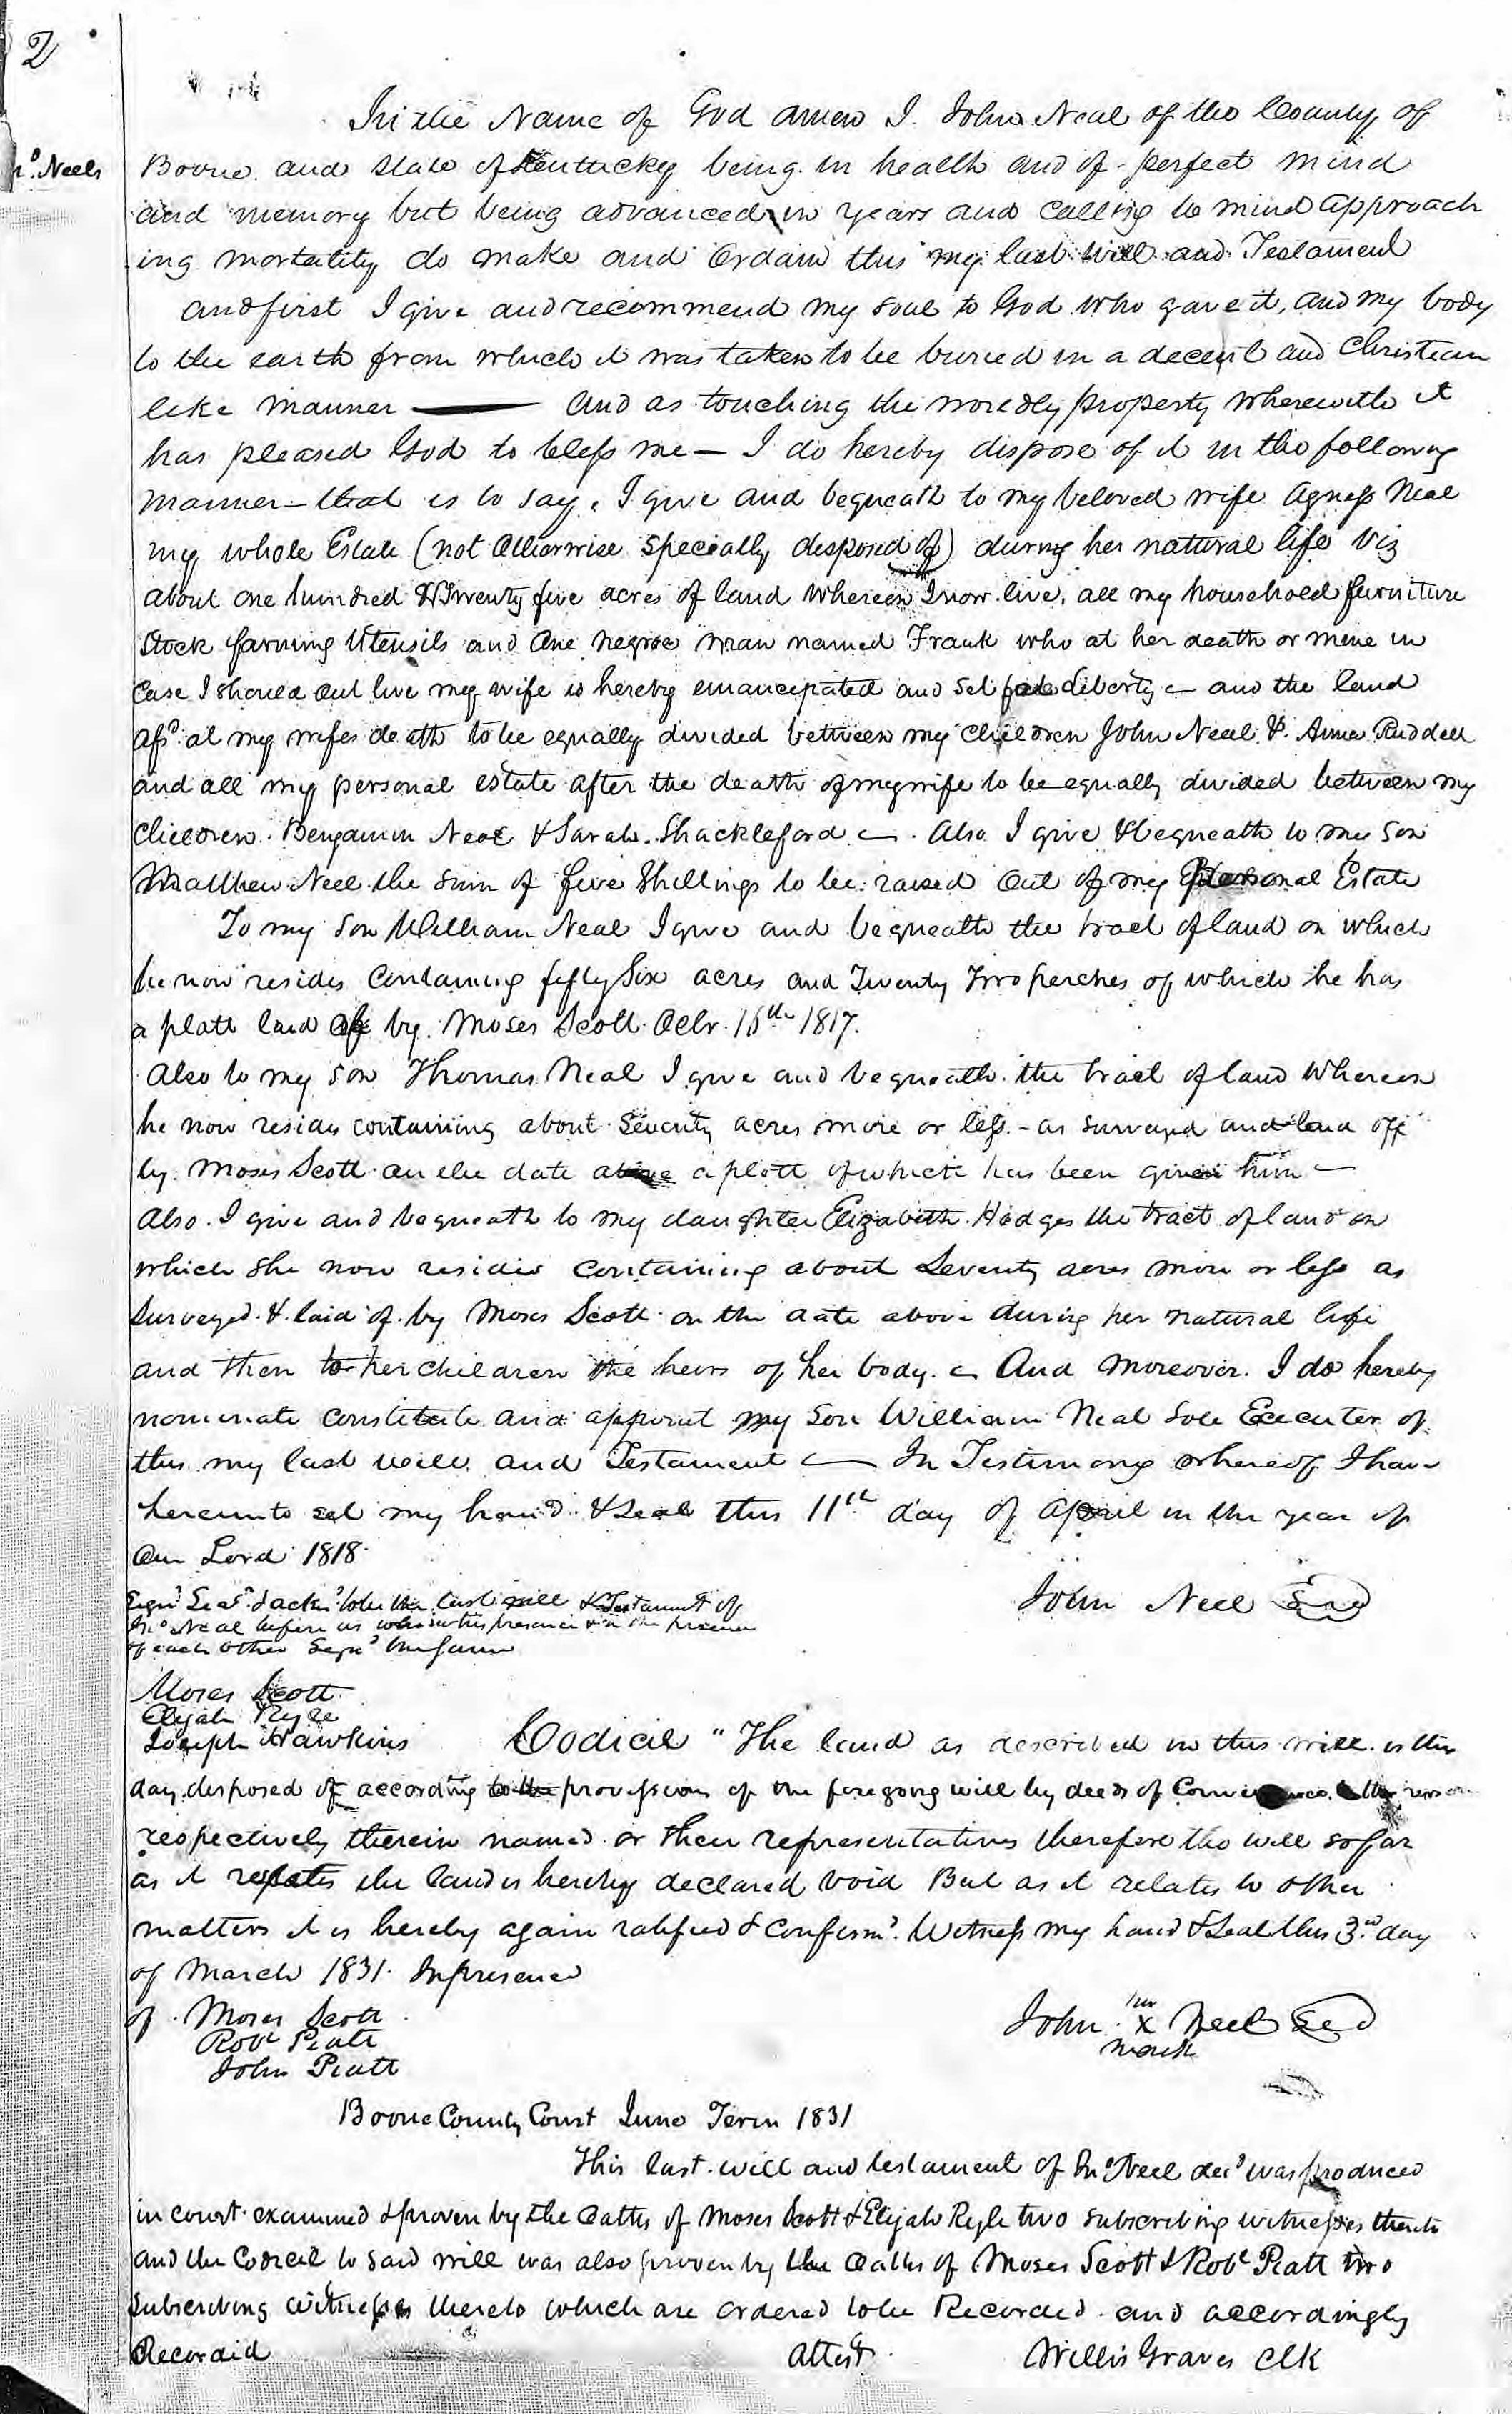 2
n.º Neels
In the Name of God amen I. John Neal of the County of
Boone and State of Kentucky being in health and of perfect mind
and memory but being advanced in years and calling to mind approach
ing mortality do make and Ordain this my last will and Testament
and first I give and recommend my soul to God who gave it, and my body
to the earth from which it was taken to be buried in a decent and Christian
like manner — and as touching the worldly property wherewith it
has pleased God to bless me — I do hereby dispose of it in the following
manner – that is to say, I give and bequeath to my beloved wife Agness Neal
my whole Estate (not Otherwise Specially disposed of) during her natural life Viz
about one hundred & Twenty five acres of land whereon I now live, all my household furniture
Stock farming Utensils and One negroe man named Frank who at her death or mine in
Case I should out live my wife is hereby emancipated and set Liberty – and the land
afsd. at my wifes death to be equally divided between my children John Neal & Anna Ruddell
and all my personal estate after the death of my wife to be equally divided between my
children Benjamin Neal & Sarah Shackleford – Also I give & bequeath to my son
Matthew Neel the Sum of five Shillings to be raised Out of my personal Estate
To my Son William Neal I give and bequeath the tract of land on which
he now resides Containing fifty Six acres and Twenty Two perches of which he has
a platt laid off by Moses Scott Octr. 15th 1817.
Also to my son Thomas Neal I give and bequeath the tract of land Whereon
he now resides containing about Seventy acres more or less – as surveyed and laid off
by Moses Scott on the date above a plott of which has been given him –
Also I give and bequeath to my daughter Elizabeth Hodges the tract of land on
which she now resides Containing about Seventy acres more or less as
Surveyed & laid of by Moses Scott on the date above during her natural life
and then to her children the heirs of her body. – And moreover I do hereby
nominate constitute and appoint my Son William Neal Sole Executor of
this my last will and Testament — In Testimony whereof I have
hereunto set my hand & Seal this 11th day of April in the year of
Our Lord 1818.
Signd Seald & ackd to be the last will & Testament of
Jno Neal before us who in his presence & in the presence
of each other Signd the same
John Neel Seal
Moses Scott
Elijah Ryle
Joseph Hawkins
Codicil "The land as described in this will is this
day disposed of according to the provission of the foregoing will by deeds of
respectively therein named or their representatives therefore the will so far
as it relates the land is hereby declared void But as it relates to other
matters it is hereby again ratified & confirmd. Witness my hand & Seal this 3rd day
of March 1831. In presence
of Moses Scott
Robt Piatt
John Piatt
John his X mark Neel Seal
Boone County Court June Term 1831
This last will and testament of Jno Neel decd was produced
in court examined & proven by the Oaths of Moses Scott & Elijah Ryle two subscribing witnesses thereto
and the Codicil to said will was also proven by the Oaths of Moses Scott & Robt Piatt two
Subscribing witnesses thereto which are ordered to be Recorded and accordingly
Recorded
Attest
Willis Graves Clk